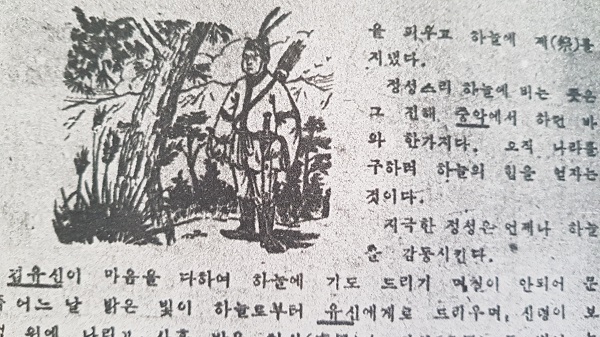 을 피우고 하늘에 제(祭)를
지냈다.
정성스리 하늘에 비는 뜻은
그 전해 중악에서 하던 바
와 한가지다. 오직 나라를
구하려 하늘의 힘을 얻자는
것이다.
지극한 정성은 언제나 하늘
을 감동시킨다.
김유신이 마음을 다하여 하늘에 기도 드리기 며칠이 안되어 문
어느 날 밝은 빛이 하늘로부터 유신에게로 드리우며, 신령이 보
위에 나리고